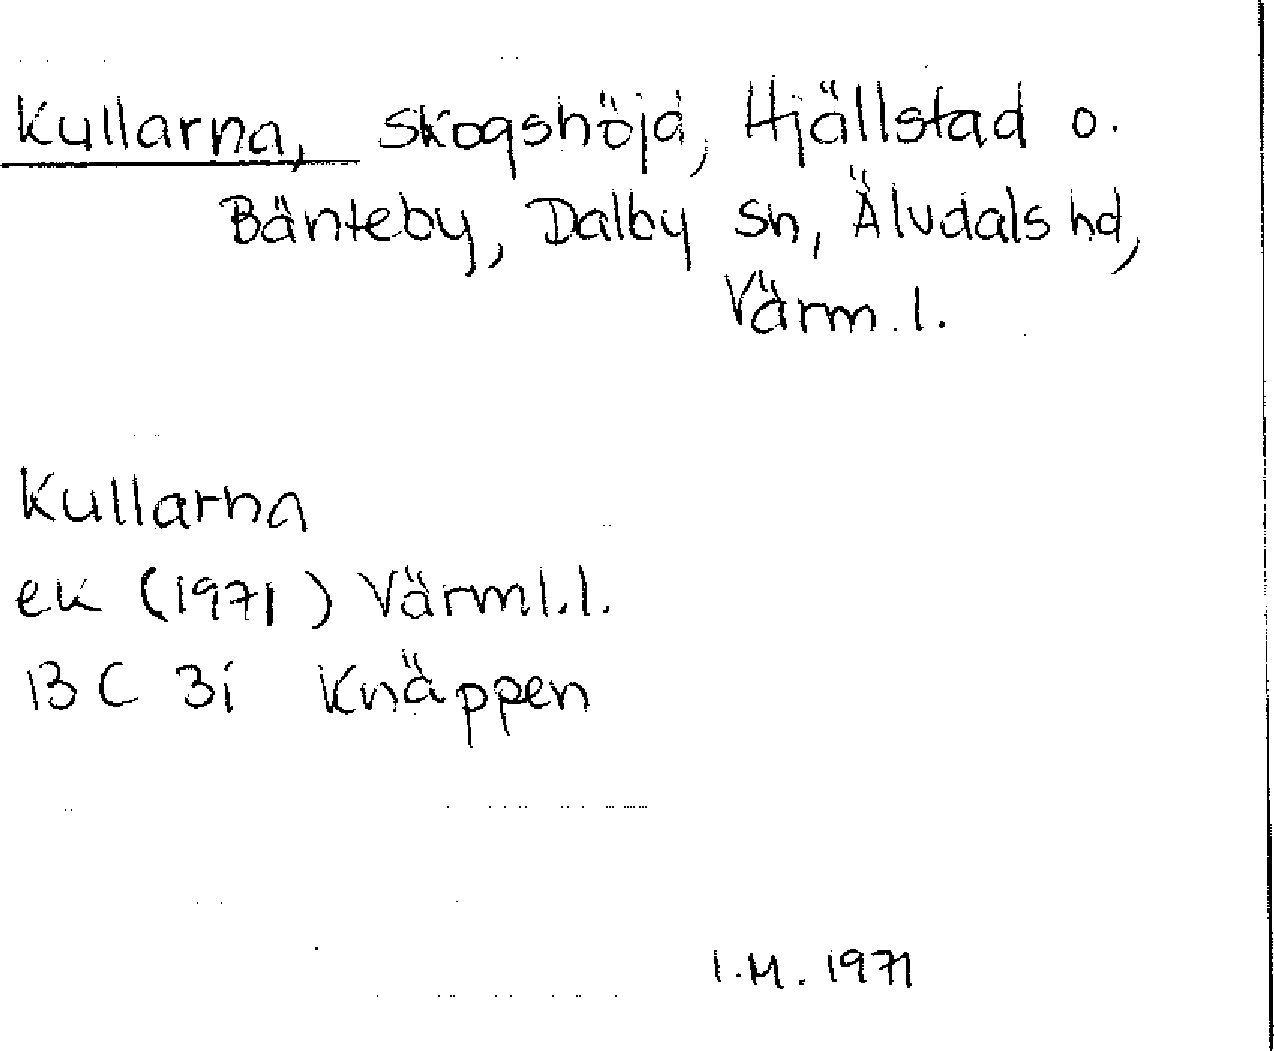 Kullarna, skogshöjd, Hjällstad o.
Bänteby, Dalby sn, Älvdals hd,
Värm.l.
Kullarna
ek (1971) Värml.l.
13 C 3i Knäppen
I.M. 1971